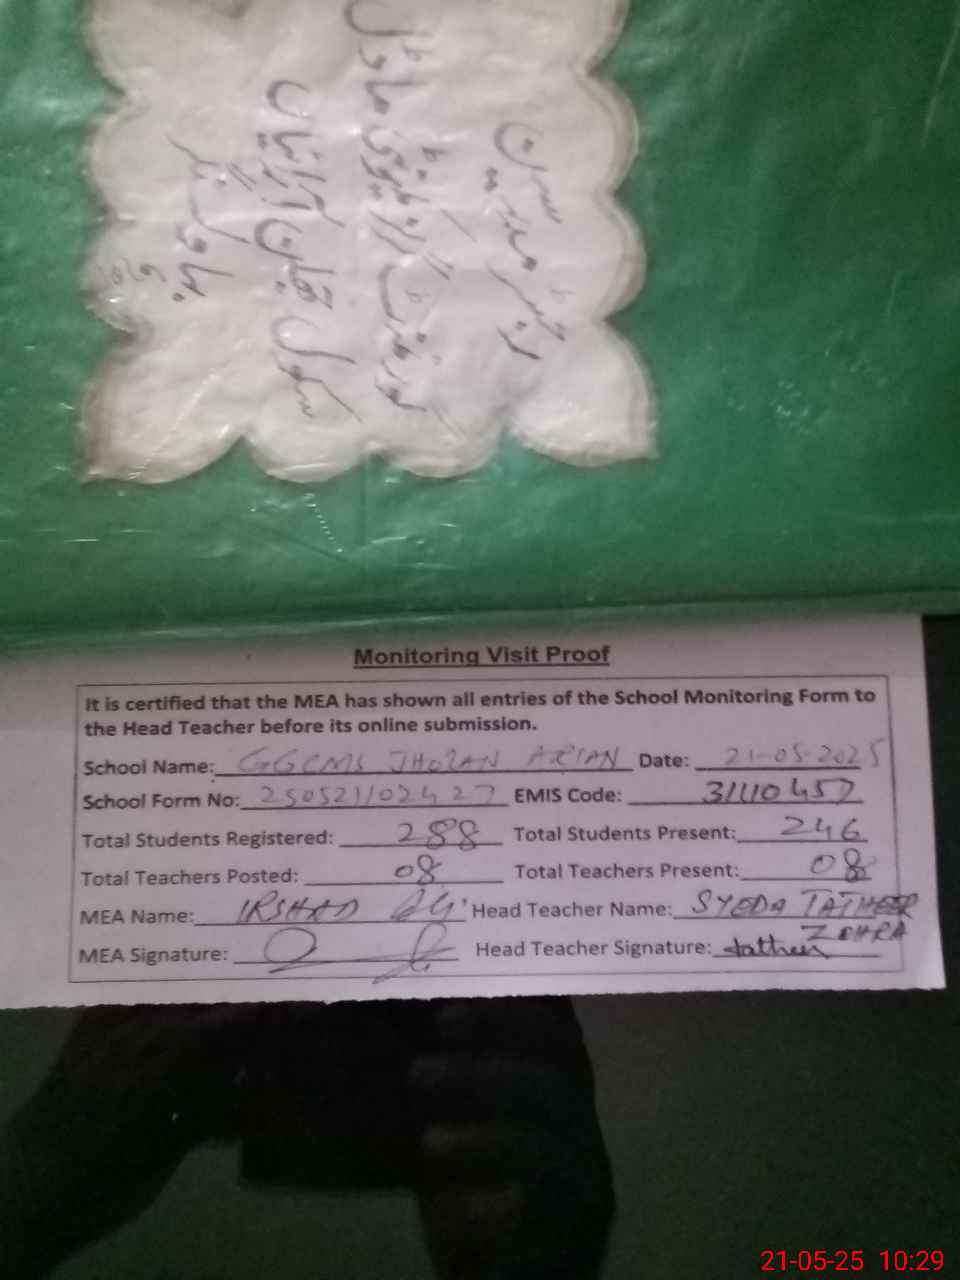 رجسٹر مدرسین
گورنمنٹ گرلز کمیونٹی ماڈل
سکول جھلن آرائیاں
بہاولنگر
Monitoring Visit Proof
It is certified that the MEA has shown all entries of the School Monitoring Form to
the Head Teacher before its online submission.
School Name: GGCMS JHOLAN ARIAN Date: 21-05-2025
School Form No: 250521102427 EMIS Code: 31110457
Total Students Registered: 288 Total Students Present: 246
Total Teachers Posted: 08 Total Teachers Present: 08
MEA Name: IRSHAD Head Teacher Name: SYEDA TATHEER
ZOHRA
MEA Signature: Head Teacher Signature: tatheer
21-05-25 10:29